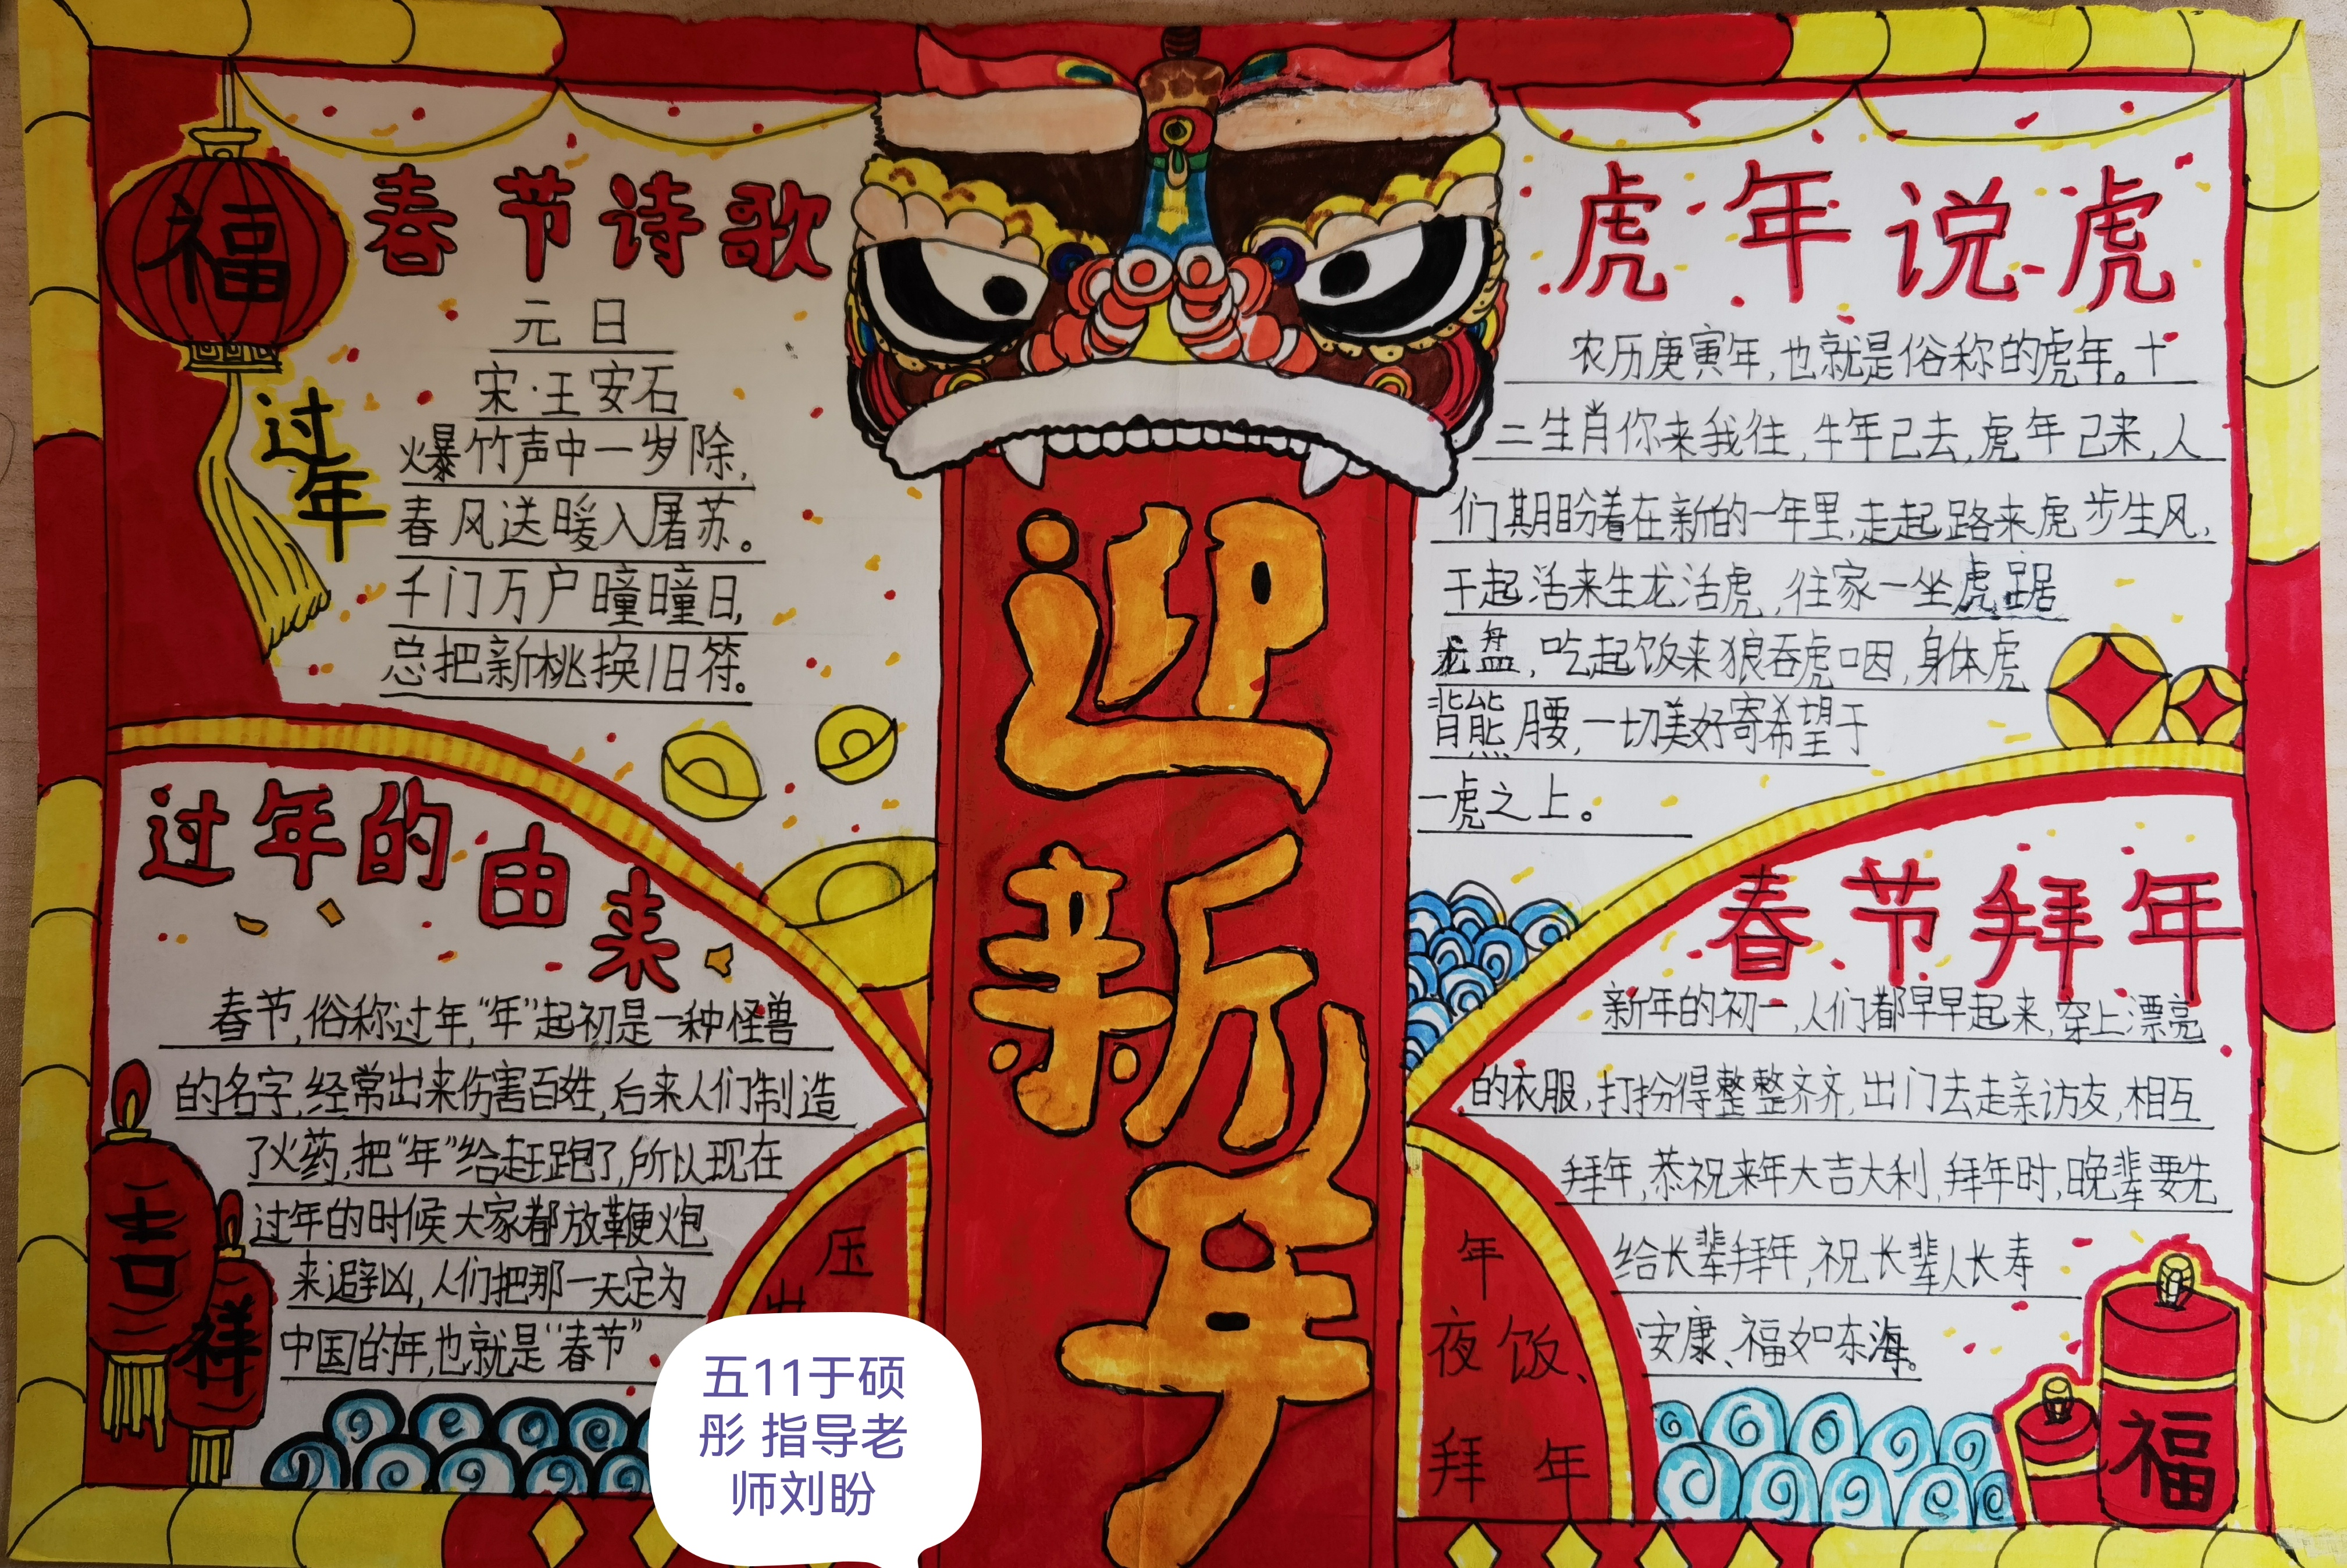 福
过年
春节诗歌
元日
宋·王安石
爆竹声中一岁除,
春风送暖入屠苏。
千门万户曈曈日,
总把新桃换旧符。
迎新年
虎年说虎
农历庚寅年,也就是俗称的虎年。十
二生肖你来我往,牛年己去,虎年己来,人
们期盼着在新的一年里,走起路来虎步生风,
干起活来生龙活虎,往家一坐虎踞
龙盘,吃起饭来狼吞虎咽,身体虎
背熊腰,一切美好寄希望于
一虎之上。
过年的由来
春节,俗称过年,“年”起初是一种怪兽
的名字,经常出来伤害百姓,后来人们制造
了火药,把“年”给赶跑了,所以现在
过年的时候大家都放鞭炮
来避凶,人们把那一天定为
中国的年,也就是“春节”
吉
祥
压
春节拜年
新年的初一,人们都早早起来,穿上漂亮
的衣服,打扮得整整齐齐,出门去走亲访友,相互
拜年,恭祝来年大吉大利,拜年时,晚辈要先
给长辈拜年,祝长辈人长寿
安康、福如东海。
年
夜饭、
拜年
福
五11于硕
彤 指导老
师刘盼